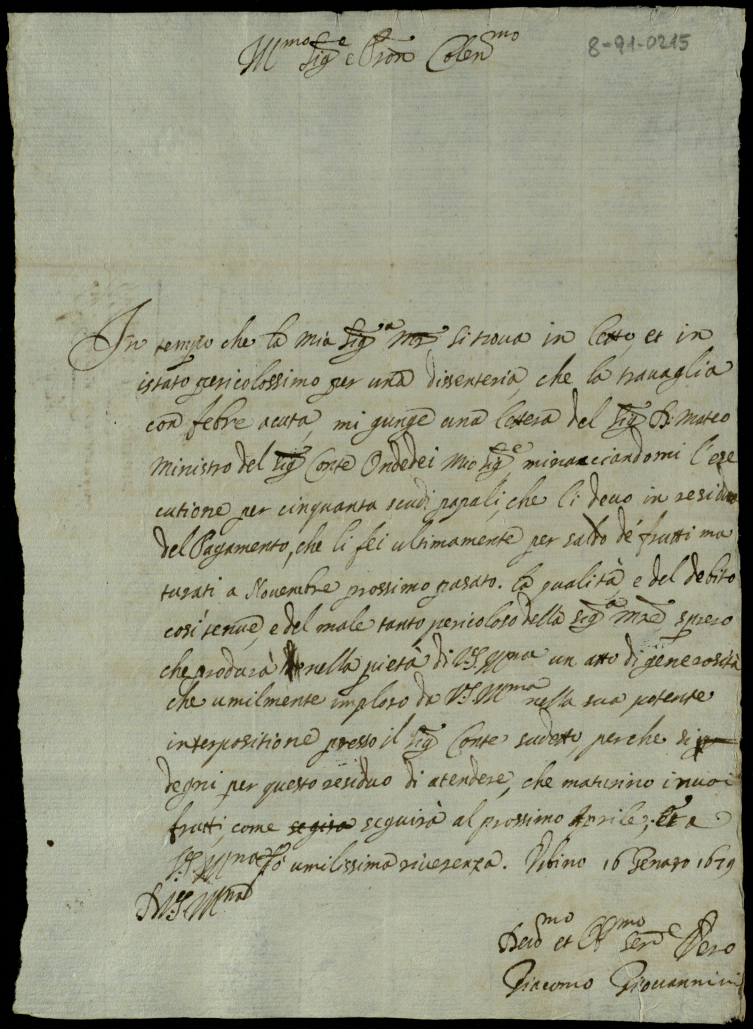 Ill.mo Sig.e e Pron Colen.mo
8-91-0215
In tempo che la mia Sig.a M.e si trova in letto, et in
istato pericolossimo per una dissenteria, che la travaglia
con febre acuta, mi gunge una letera del Sig. D. Mateo
Ministro del Sig. Conte Ondedei mio Sig.e minacciandomi l'ese
cutione per cinquanta scudi papali, che li devo in residuo
del Pagamento, che li fei ultimamente per saldo de' frutti ma
turati a Novembre prossimo pasato. la qualità e del debito
così tenue, e del male tanto pericoloso della Sig.a Mad.e spero
che produrà nella pietà di V.S. Ill.ma un atto di generosità
che umilmente imploro da V.S. Ill.ma nella sua potente
interpositione presso il Sig. Conte sudetto, perche si
degni per questo residuo di atendere, che maturino i nuovi
frutti, come segira seguirà al prossimo Aprile, et a
V.S. Ill.ma fò umilissima riverenza. Urbino 16 Genaro 1679
D V.S. Ill.ma
Dev.mo et Obl.mo Ser.e Vero
Giacomo Giovannini